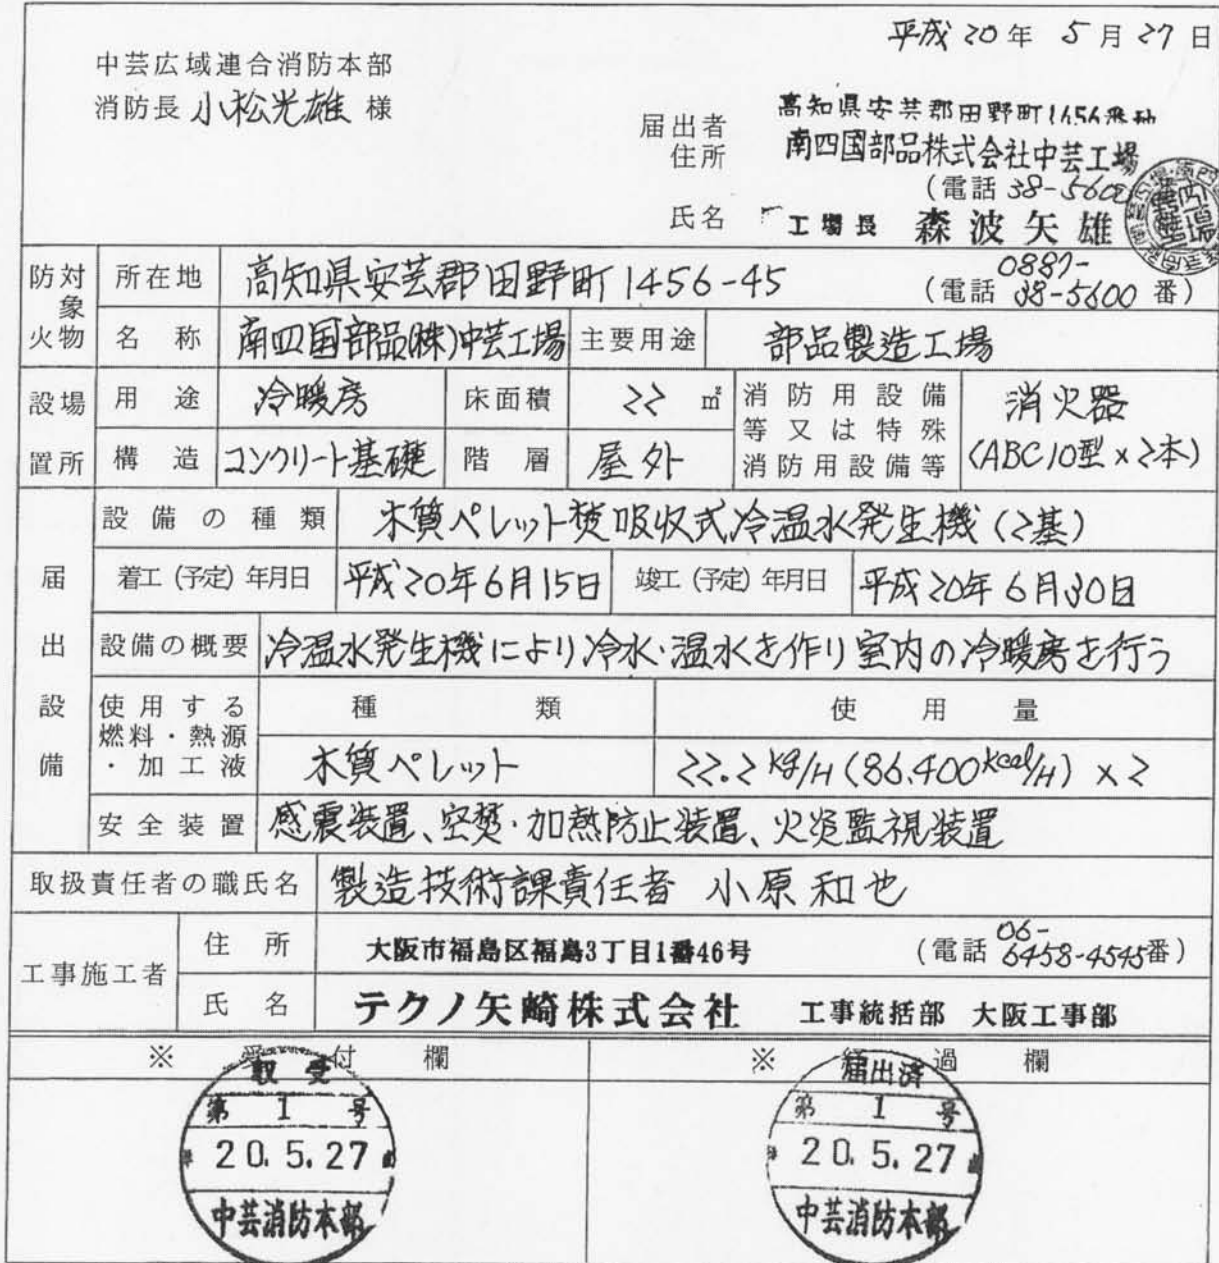 平成20年 5月27日
中芸広域連合消防本部
消防長 小松光雄 様
届出者
住所
高知県安芸郡田野町1656番地
南四国部品株式会社中芸工場
(電話 38-5600
氏名 工場長 森波矢雄
防火対象物 所在地 高知県安芸郡田野町1456-45 (電話 0887-38-5600 番)
名称 南四国部品(株)中芸工場 主要用途 部品製造工場
設置場所 用途 冷暖房 床面積 22 ㎡ 消防用設備等又は特殊消防用設備等 消火器(ABC10型×2本)
構造 コンクリート基礎 階層 屋外
届出設備 設備の種類 木質ペレット焚吸収式冷温水発生機(2基)
着工(予定)年月日 平成20年6月15日 竣工(予定)年月日 平成20年6月30日
設備の概要 冷温水発生機により冷水・温水を作り室内の冷暖房を行う
使用する燃料・熱源・加工液 種類 使用量
木質ペレット 22.2kg/H(86.400kcal/H)×2
安全装置 感震装置、空焚・加熱防止装置、火炎監視装置
取扱責任者の職氏名 製造技術課責任者 小原和也
工事施工者 住所 大阪市福島区福島3丁目1番46号 (電話 06-6458-4545番)
氏名 テクノ矢崎株式会社 工事統括部 大阪工事部
※ 受付欄 ※ 経過欄
収受
第 1 号
20.5.27
中芸消防本部
届出済
第 1 号
20.5.27
中芸消防本部